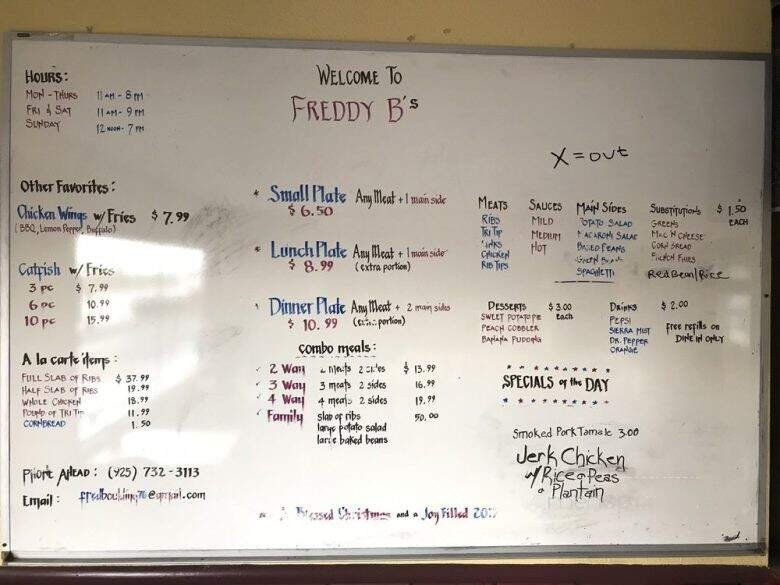 WELCOME TO
FREDDY B's
HOURS:
MON - THURS 11 AM - 8 PM
FRI & SAT 11 AM - 9 PM
SUNDAY 12 NOON - 7 PM
X = out
Other Favorites:
Chicken Wings w/ Fries $ 7.99
(BBQ, Lemon Pepper, Buffalo)
Catfish w/ Fries
3 pc $ 7.99
6 pc 10.99
10 pc 15.99
A la carte items:
FULL SLAB OF RIBS $ 37.99
HALF SLAB OF RIBS 19.99
WHOLE CHICKEN 18.99
POUND OF TRI TIP 11.99
CORNBREAD 1.50
PHONE AHEAD: (925) 732-3113
Email: @gmail.com
* Small Plate Any Meat + 1 main side
$ 6.50
* Lunch Plate Any Meat + 1 main side
$ 8.99 (extra portion)
* Dinner Plate Any Meat + 2 main sides
$ 10.99 (extra portion)
combo meals:
2 Way 2 meats 2 sides $ 13.99
3 Way 3 meats 2 sides 16.99
4 Way 4 meats 2 sides 19.99
Family slab of ribs 50.00
large potato salad
large baked beans
MEATS
RIBS
TRI TIP
LINKS
CHICKEN
RIB TIPS
SAUCES
MILD
MEDIUM
HOT
MAIN SIDES
POTATO SALAD
MACARONI SALAD
BAKED BEANS
GREEN BEANS
SPAGHETTI
SUBSTITUTIONS $ 1.50
EACH
GREENS
MAC N CHEESE
CORN BREAD
FRENCH FRIES
Red Bean/Rice
DESSERTS $ 3.00
each
SWEET POTATO PIE
PEACH COBBLER
BANANA PUDDING
DRINKS $ 2.00
PEPSI
SIERRA MIST
DR. PEPPER
ORANGE
free refills on
DINE IN ONLY
SPECIALS of the DAY
Smoked Pork Tamale 3.00
Jerk Chicken
w/ Rice & Peas
& Plantain
Blessed Christmas and a Joy Filled